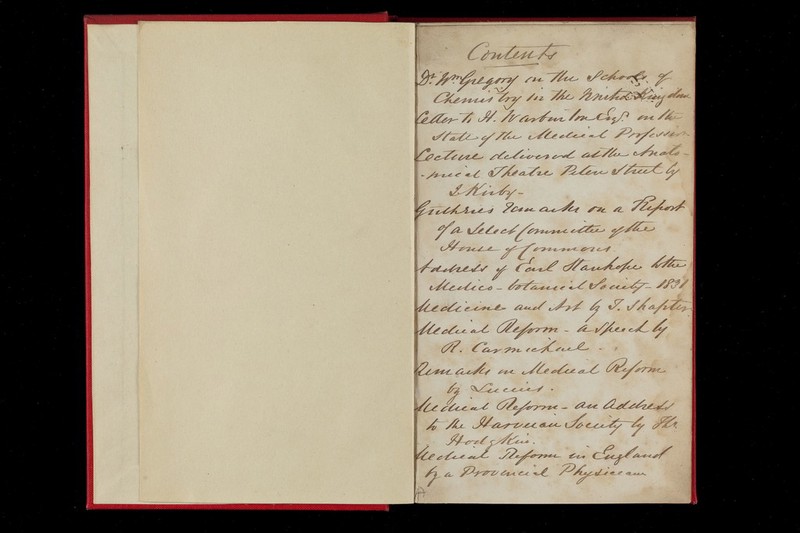 Contents
Dr. Wm Gregory on the Schools of
Chemistry in the United Kingdom
Letter to H. Warburton Esqr. on the
State of the Medical Profession
Lecture delivered at the Anato-
-mical Theatre Peter Street by
J. Kirby -
Guthries Remarks on a Report
of a Select Committee of the
House of Commons
Address of Earl Stanhope to the
Medico-botanical Society - 183
Medicine and Art by T. Shapter
Medical Reform - a Speech by
R. Carmichael -
Remarks on Medical Reform
by Lucius.
Medical Reform - an Address
to the Harveian Society by Th
Hodgkin.
Medical Reform in England
by a Provincial Physician